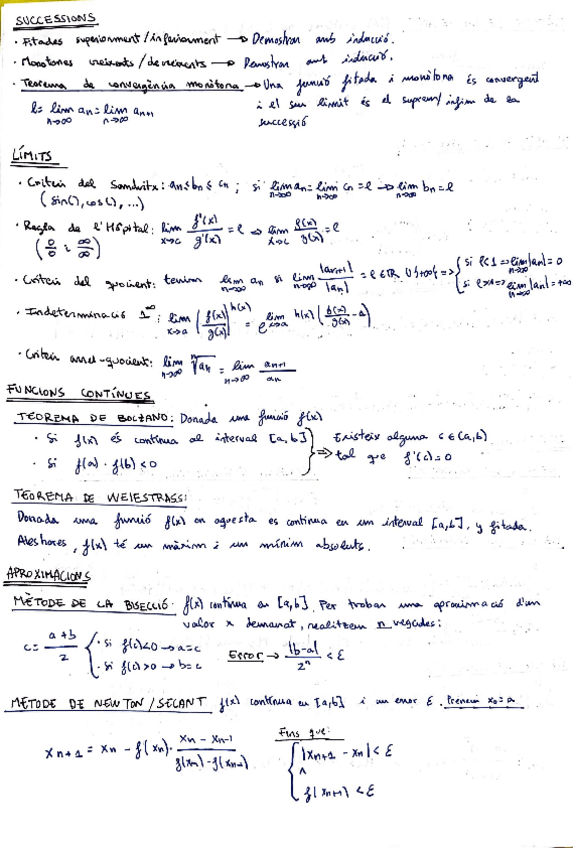 SUCCESSIONS
· Fitades superiorment/inferiorment → Demostrar amb inducció.
· Monotones creixents/decreixents → Demostrar amb inducció.
· Teorema de convergència monòtona → Una funció fitada i monòtona és convergent
l = lim n→∞ an = lim n→∞ an+1 i el seu límit és el suprem/ínfim de la
successió
LÍMITS
· Criteri del Sandvitx: an ≤ bn ≤ cn ; si lim n→∞ an = lim n→∞ cn = l → lim n→∞ bn = l
(sin(), cos(), ...)
· Regla de l'Hôpital: lim x→c f'(x)/g'(x) = l ⇒ lim x→c f(x)/g(x) = l
(0/0 i ∞/∞)
· Criteri del quocient: tenim lim n→∞ an si lim n→∞ |an+1|/|an| = l ∈ ℝ ∪ {+∞} ⇒ { si l<1 ⇒ lim n→∞ |an| = 0
si l>1 ⇒ lim n→∞ |an| = +∞
· Indeterminació 1^∞: lim x→a (f(x)/g(x))^h(x) = e^lim x→a h(x) (f(x)/g(x) - 1)
· Criteri arrel-quocient: lim n→∞ ⁿ√an = lim n→∞ an+1/an
FUNCIONS CONTÍNUES
TEOREMA DE BOLZANO: Donada una funció f(x)
· Si f(x) és contínua al interval [a,b] } Existeix alguna c ∈ (a,b)
· Si f(a) · f(b) < 0 ⇒ tal que f'(c)=0
TEOREMA DE WEIESTRASS:
Donada una funció f(x) on aquesta es contínua en un interval [a,b], y fitada.
Aleshores, f(x) té un màxim i un mínim absoluts.
APROXIMACIONS
MÈTODE DE LA BISECCIÓ: f(x) contínua en [a,b]. Per trobar una aproximació d'un
valor x demanat, realitzem n vegades:
c = a+b/2 { · Si f(c)<0 → a=c
· Si f(c)>0 → b=c Error → |b-a|/2^n < ε
MÈTODE DE NEWTON/SECANT f(x) contínua en [a,b] i un error ε. Prenem x0=a
xn+1 = xn - f(xn) · xn - xn-1/f(xn) - f(xn-1)
Fins que:
{ |xn+1 - xn| < ε
∧
f(xn+1) < ε